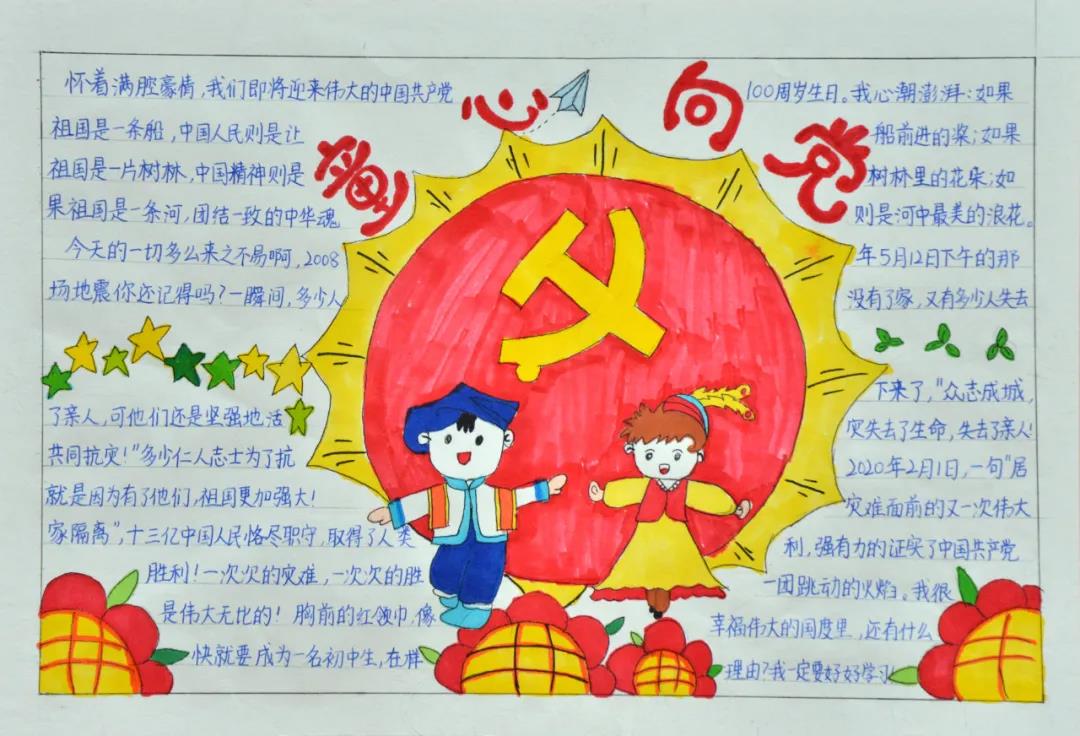 童心向党
怀着满腔豪情,我们即将迎来伟大的中国共产党 100周岁生日。我心潮澎湃:如果
祖国是一条船,中国人民则是让 船前进的桨;如果
祖国是一片树林,中国精神则是 树林里的花朵;如
果祖国是一条河,团结一致的中华魂 则是河中最美的浪花。
今天的一切多么来之不易啊,2008 年5月12日下午的那
场地震你还记得吗?一瞬间,多少人 没有了家,又有多少人失去
了亲人,可他们还是坚强地活 下来了,"众志成城,
共同抗灾!"多少仁人志士为了抗 灾失去了生命,失去了亲人!
就是因为有了他们,祖国更加强大! 2020年2月1日,一句"居
家隔离",十三亿中国人民恪尽职守,取得了人类 灾难面前的又一次伟大
胜利!一次次的灾难,一次次的胜 利,强有力的证实了中国共产党
是伟大无比的!胸前的红领巾,像 一团跳动的火焰。我很
快就要成为一名初中生,在样 幸福伟大的国度里,还有什么
理由?我一定要好好学习!